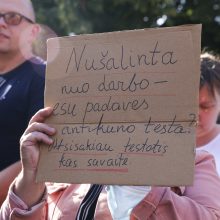 Nušalinta
nuo darbo –
esu padavęs
antikūno testą?
Atsisakiau testotis
kas savaitę